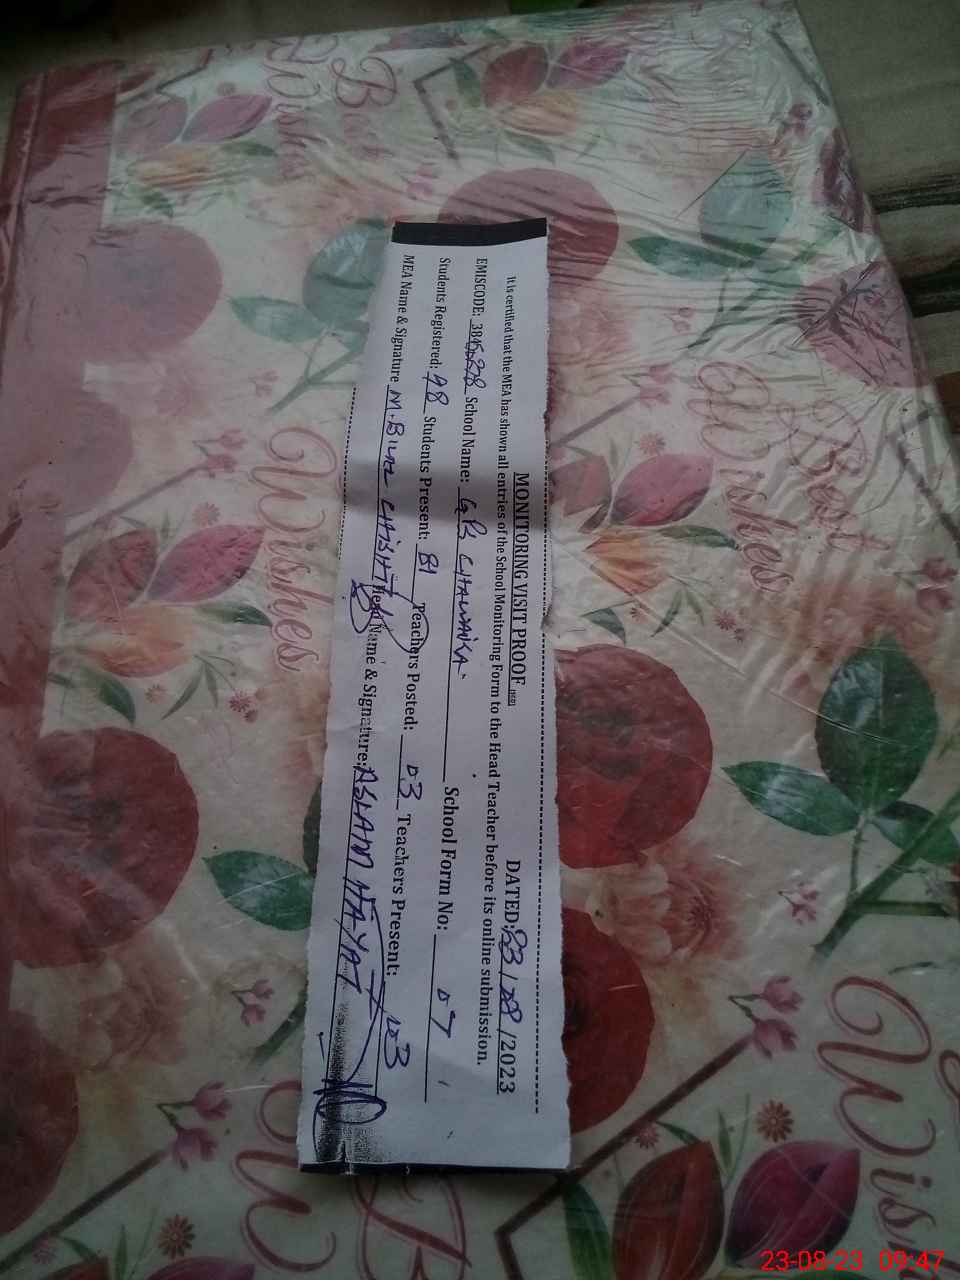 MONITORING VISIT PROOF DATED: 23/08/2023
It is certified that the MEA has shown all entries of the School Monitoring Form to the Head Teacher before its online submission.
EMISCODE: School Name: School Form No: 07
Students Registered: 98 Students Present: 81 Teachers Posted: 03 Teachers Present: 03
MEA Name & Signature M. BILAL CHISHTI Head Name & Signature: ASLAM HAYAT
Best Wishes
Wishes
Best Wishes
Wishes
23-08-23 09:47